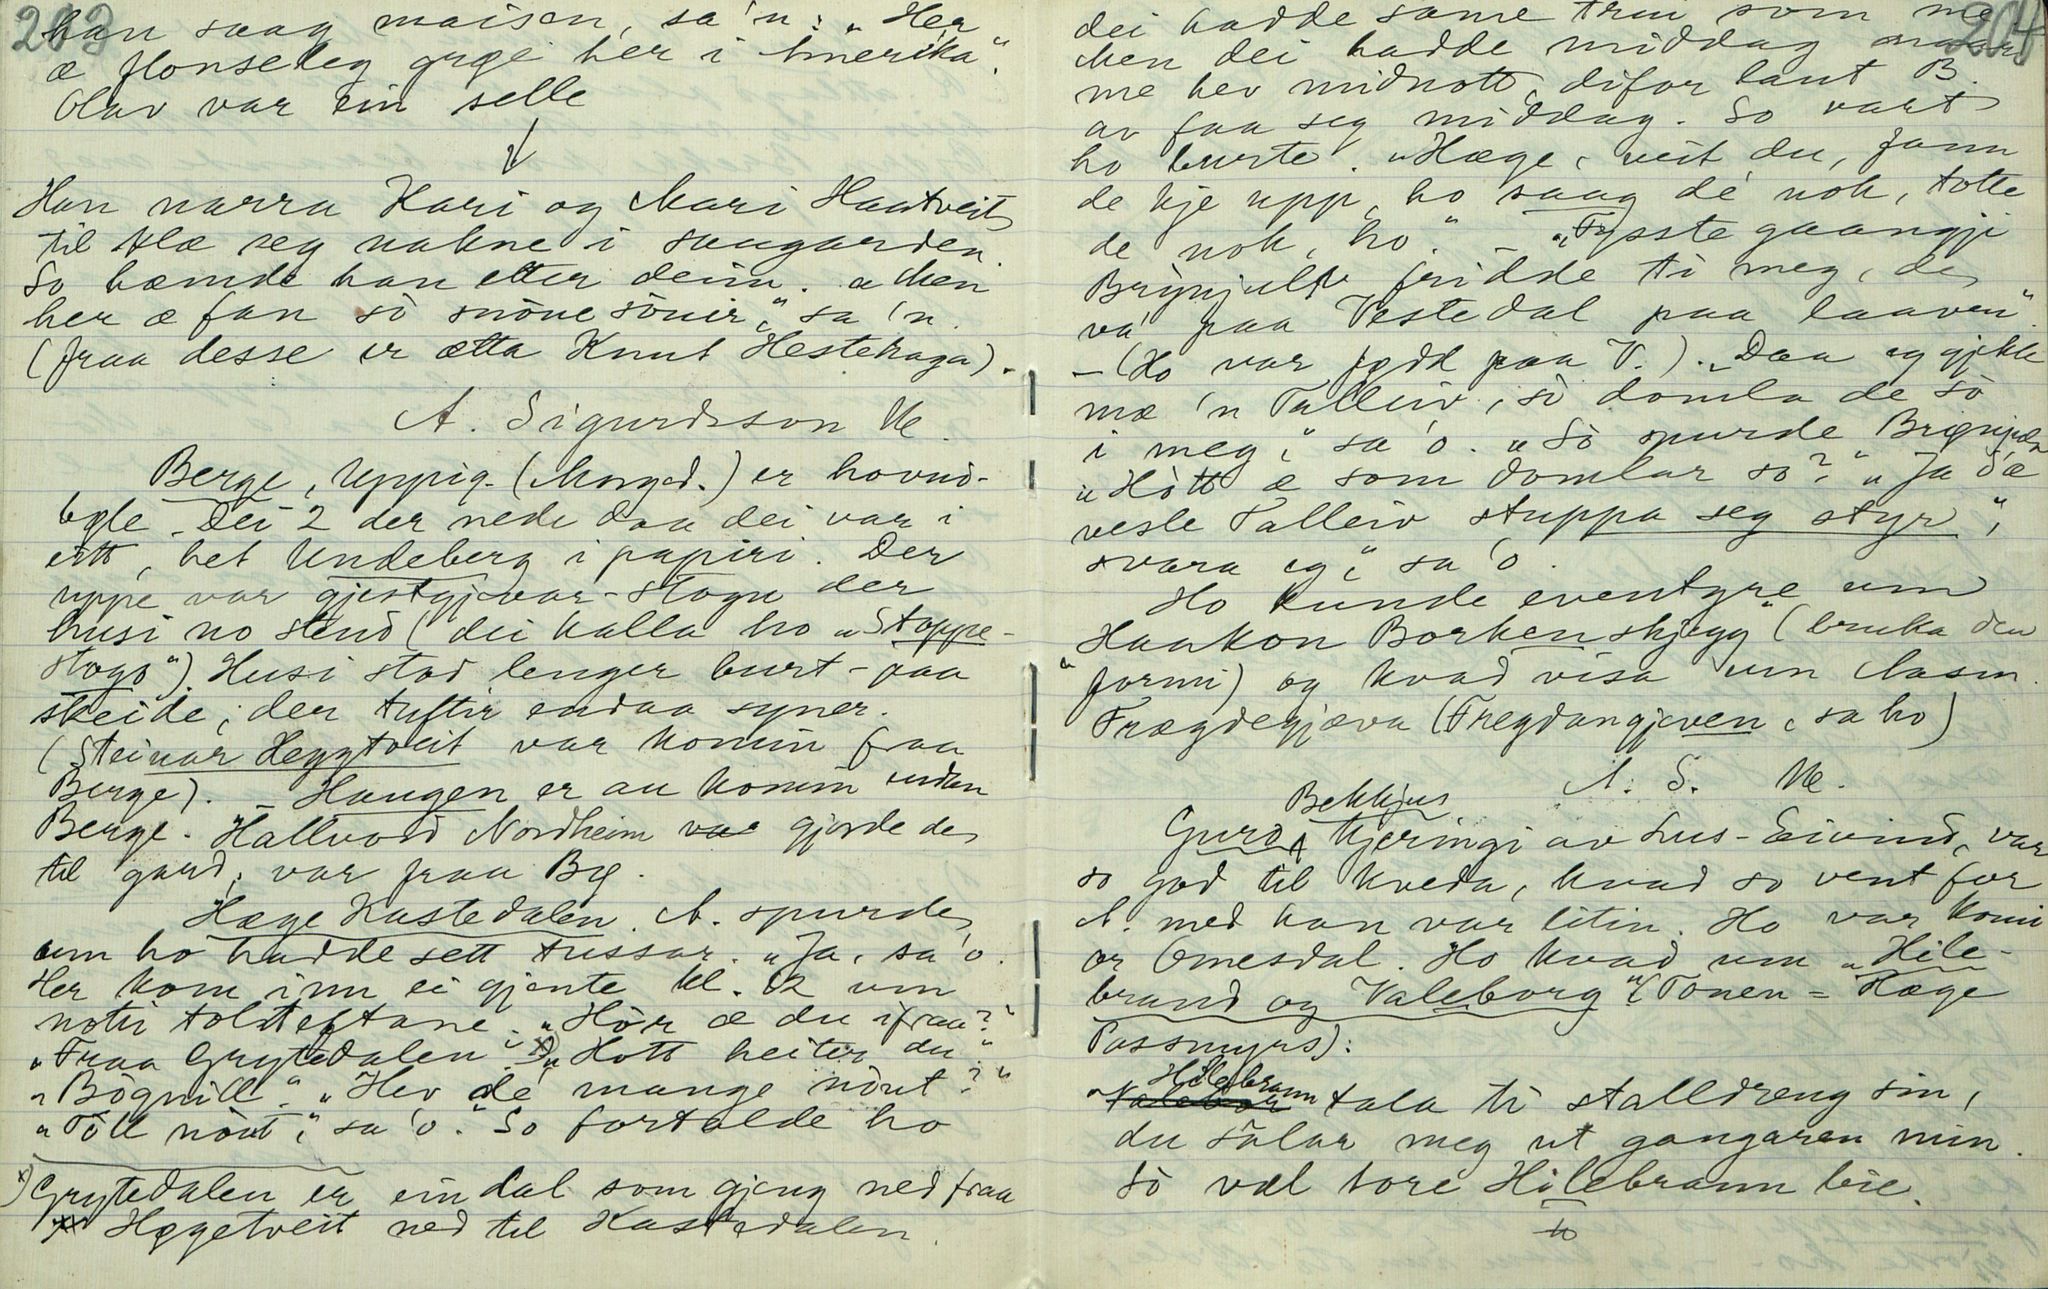 203
han saag maisen, sa'n: „Her
æ flonseleg gryè her i Amerika".
Olav var ein selle
Han narra Kari og Mari Hautveit
til klæ seg nakne i saugarden.
So hæmde han etter deim. „Men
her æ fan sò snöue sönir", sa'n.
(fraa desse er ætta Knut Hestehaga).
A. Sigurdsson M.
Berge, Uppig. (Morged.) er hovud-
bøle. Dei 2 der nede daa dei var i
eitt, het Undeberg i papiri. Der
uppe var gjestgjevar-stogu der
husi no stend (dei kalla ho „Stoppe-
stogo"). Husi stod lenger burt-paa
skeide, der tuftir endaa syner.
(Steinar Heggtveit var komin fraa
Berge). – Haugen er au komin undan
Berge. Hallvord Nordheim var gjorde de
til gard, var fraa Bø.
Hæge Kastedalen. A. spurde
um ho hadde sett tussar. „Ja, sa'o.
Her kom inn ei gjente kl. 12 um
notti tolvteftane. „Hòr æ du ifraa?"
„Fraa Grytedalen". x) „Hott heiter du"
„Bögnill". „Hev dé mange nönt?"
„Töll nönt", sa'o. So fortalde ho
x) Grytedalen er ein dal som gjeng ned fraa
Høgetveit ned til Kastedalen.
204
dei hadde same trui som me
Men dei hadde middag naar
me hev midnott, difor laut B.
av faa seg middag. So vart
ho burte. „Hæge, veit du, fann
de kje upp, ho saag dé nok, totte
de nok, ho." – „Fysste gaangji
Brynjulv fridde ti meg, de
va' paa Vestedal paa laaven".
– (Ho var fødd paa V.). „Daa eg gjekk
mæ 'n Talleiv, sò domla de sò
i meg," sa'o. „Sò spurde Brynjulv
„Hòtt æ som domlar so?" „Ja dæ
vesle Talleiv stuppa seg styr",
svara eg", sa'o.
Ho kunde eventyre um
„Haakon Borkenskjegg" (bruka den
formi) og kvad visa um Aasm.
Frægdegjæva (Fregdangjeven, sa ho)
A. S. M.
Bekkjus
Guro, kjeringi av Lus-Eivind, var
so god til kveda, kvad so vent for
A. med han var litin. Ho var komi
or Omesdal. Ho kvad um „Hile-
brand og Valeborg" (Tonen = Hæge
Tassmyrs):
Hilebrann
„Valebor tala ti stalldreng sin,
du sålar meg ut gangaren min.
Sò væl tore Hilebrann bie.